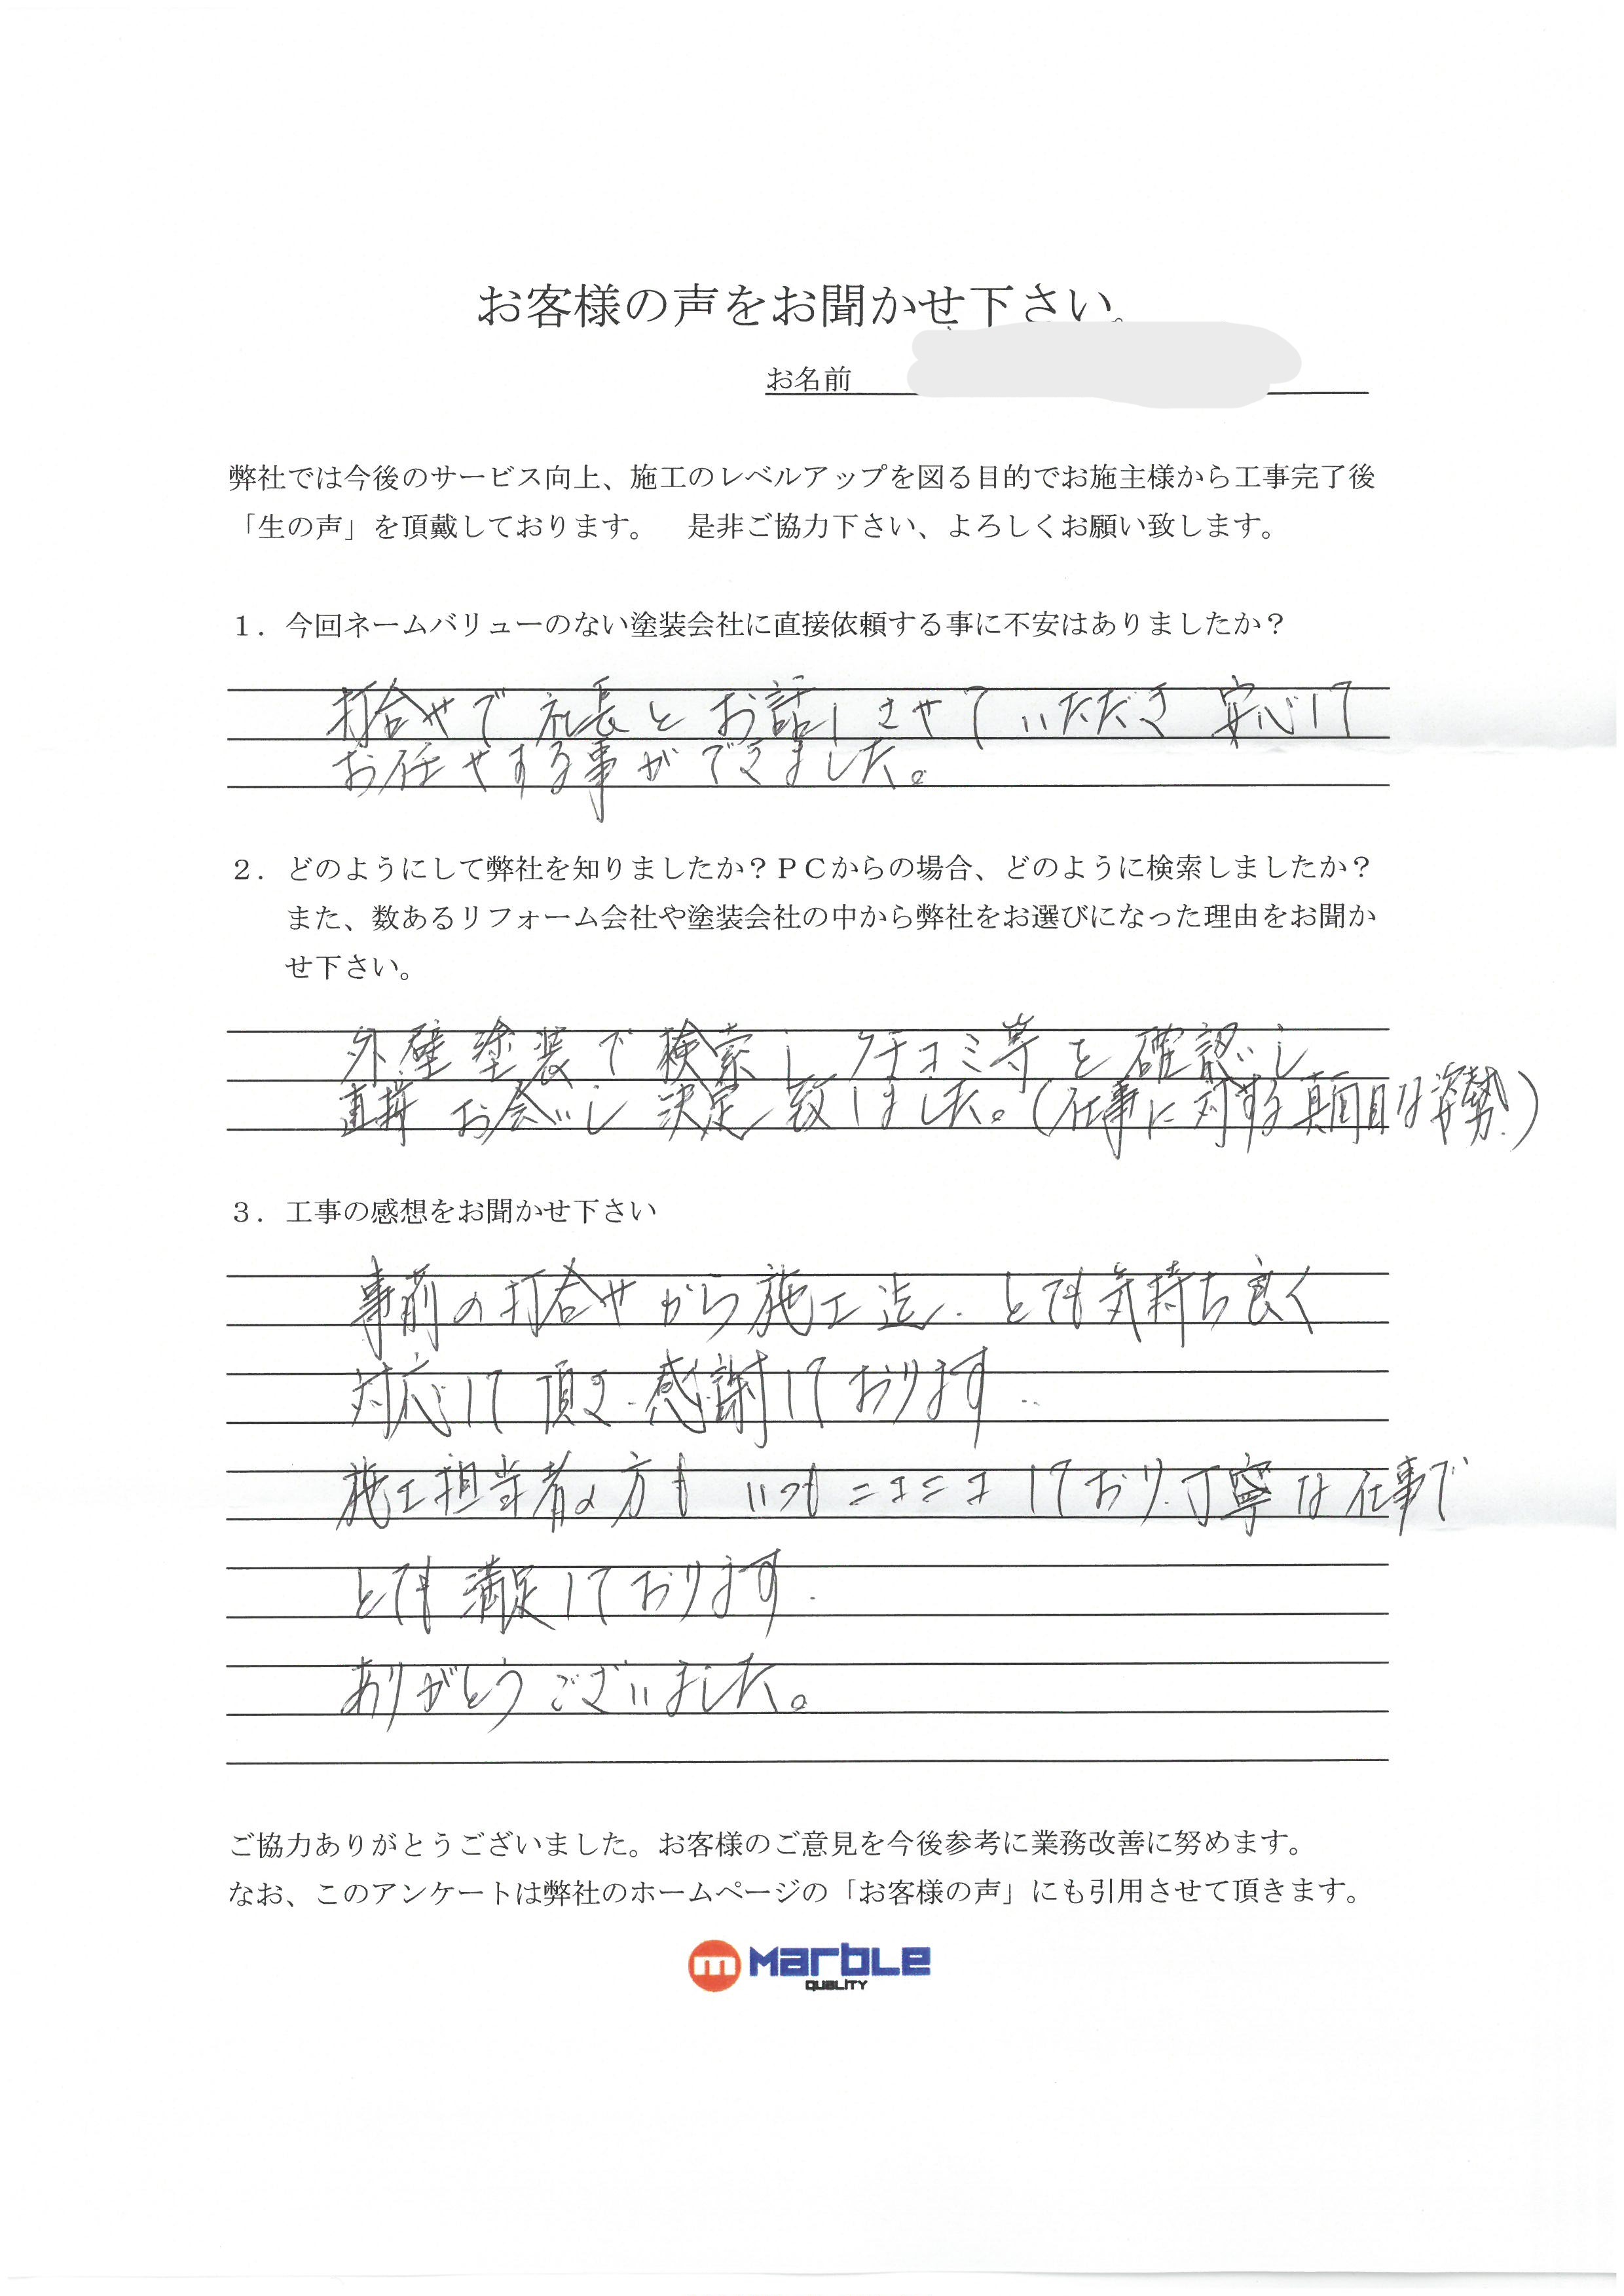 お客様の声をお聞かせ下さい。
お名前
弊社では今後のサービス向上、施工のレベルアップを図る目的でお施主様から工事完了後
「生の声」を頂戴しております。　是非ご協力下さい、よろしくお願い致します。
１．今回ネームバリューのない塗装会社に直接依頼する事に不安はありましたか？
打合せで社長とお話しさせていただき安心して
お任せする事ができました。
２．どのようにして弊社を知りましたか？ＰＣからの場合、どのように検索しましたか？
また、数あるリフォーム会社や塗装会社の中から弊社をお選びになった理由をお聞か
せ下さい。
外壁塗装で検索しクチコミ等を確認し
直接お会いし決定致しました。(仕事に対する真面目な姿勢)
３．工事の感想をお聞かせ下さい
事前の打合せから施工迄、とても気持ち良く
対応して頂き感謝しております.
施工担当者の方もいつもニコニコしており、丁寧な仕事で
とても満足しております.
ありがとうございました。
ご協力ありがとうございました。お客様のご意見を今後参考に業務改善に努めます。
なお、このアンケートは弊社のホームページの「お客様の声」にも引用させて頂きます。
m Marble
QUALITY